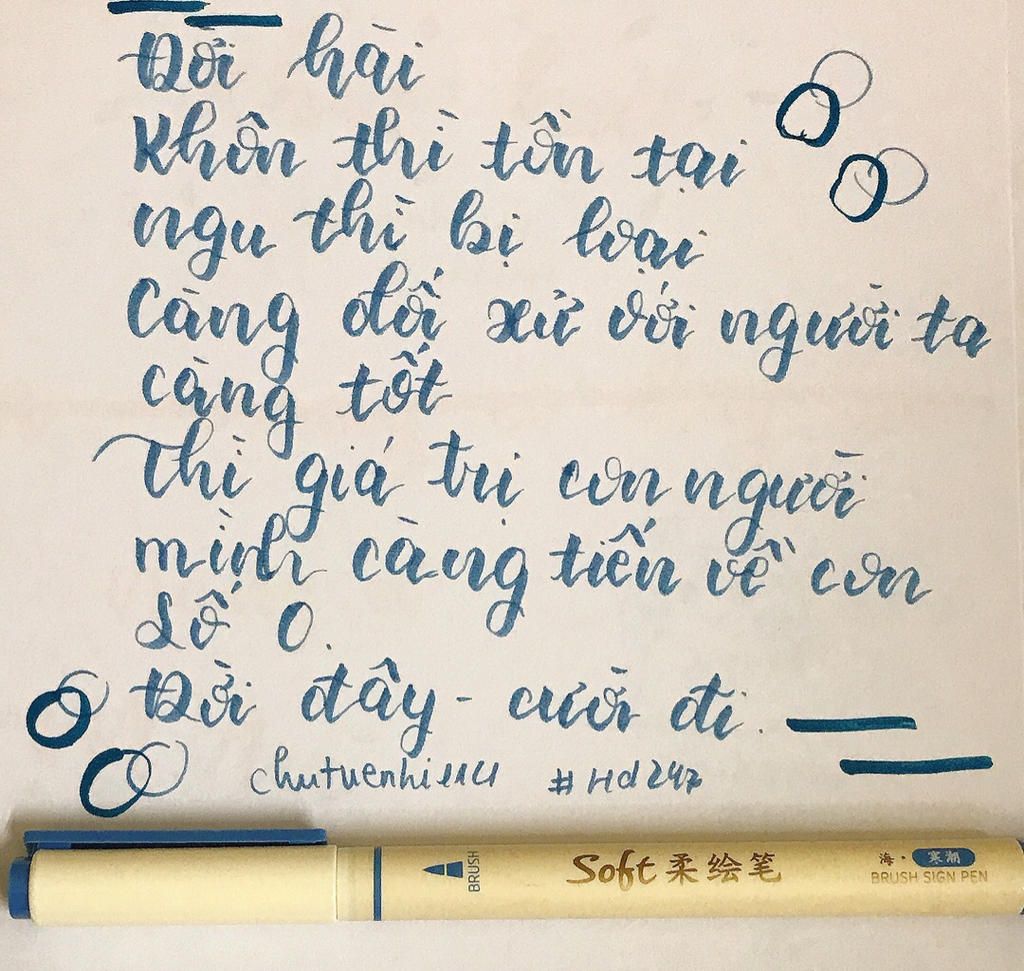 Đời hài
Khôn thì tồn tại
ngu thì bị loại
Càng đối xử với người ta
càng tốt
Thì giá trị con người
mình càng tiến về con
số 0.
Đời đấy - cười đi.
chutuenhi1114 #Hd247
BRUSH Soft 柔绘笔 海·寒潮
BRUSH SIGN PEN